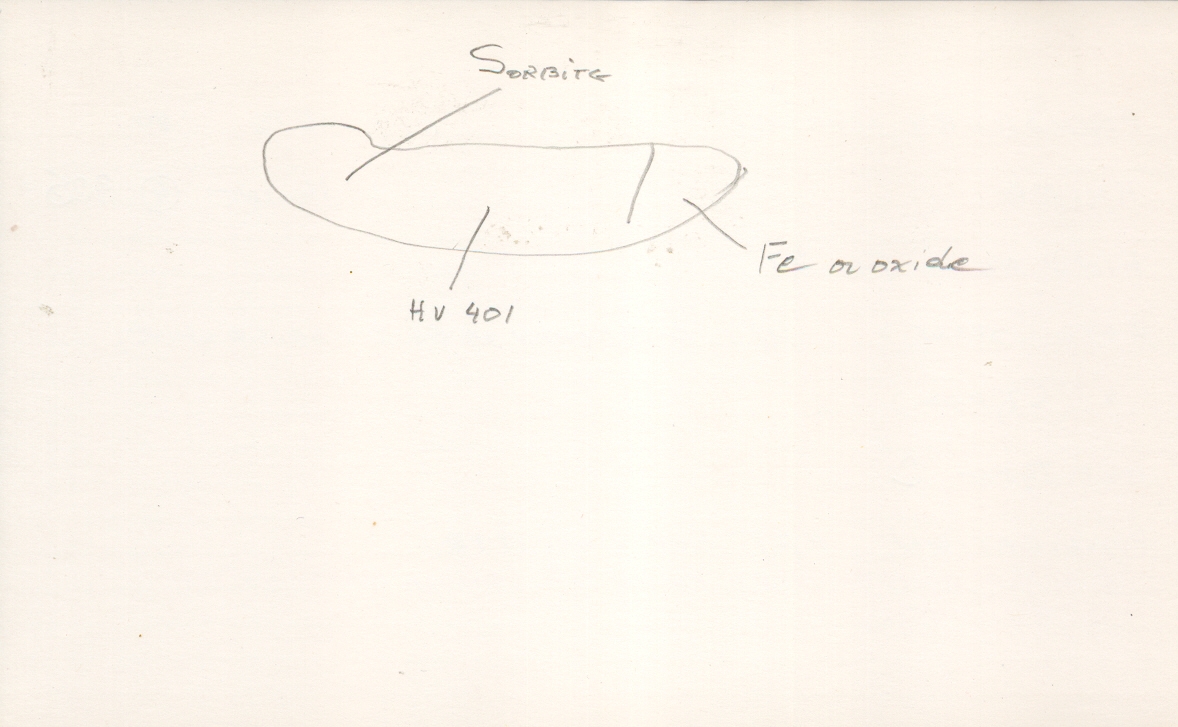 Sorbite
Fe or oxide
HV 401